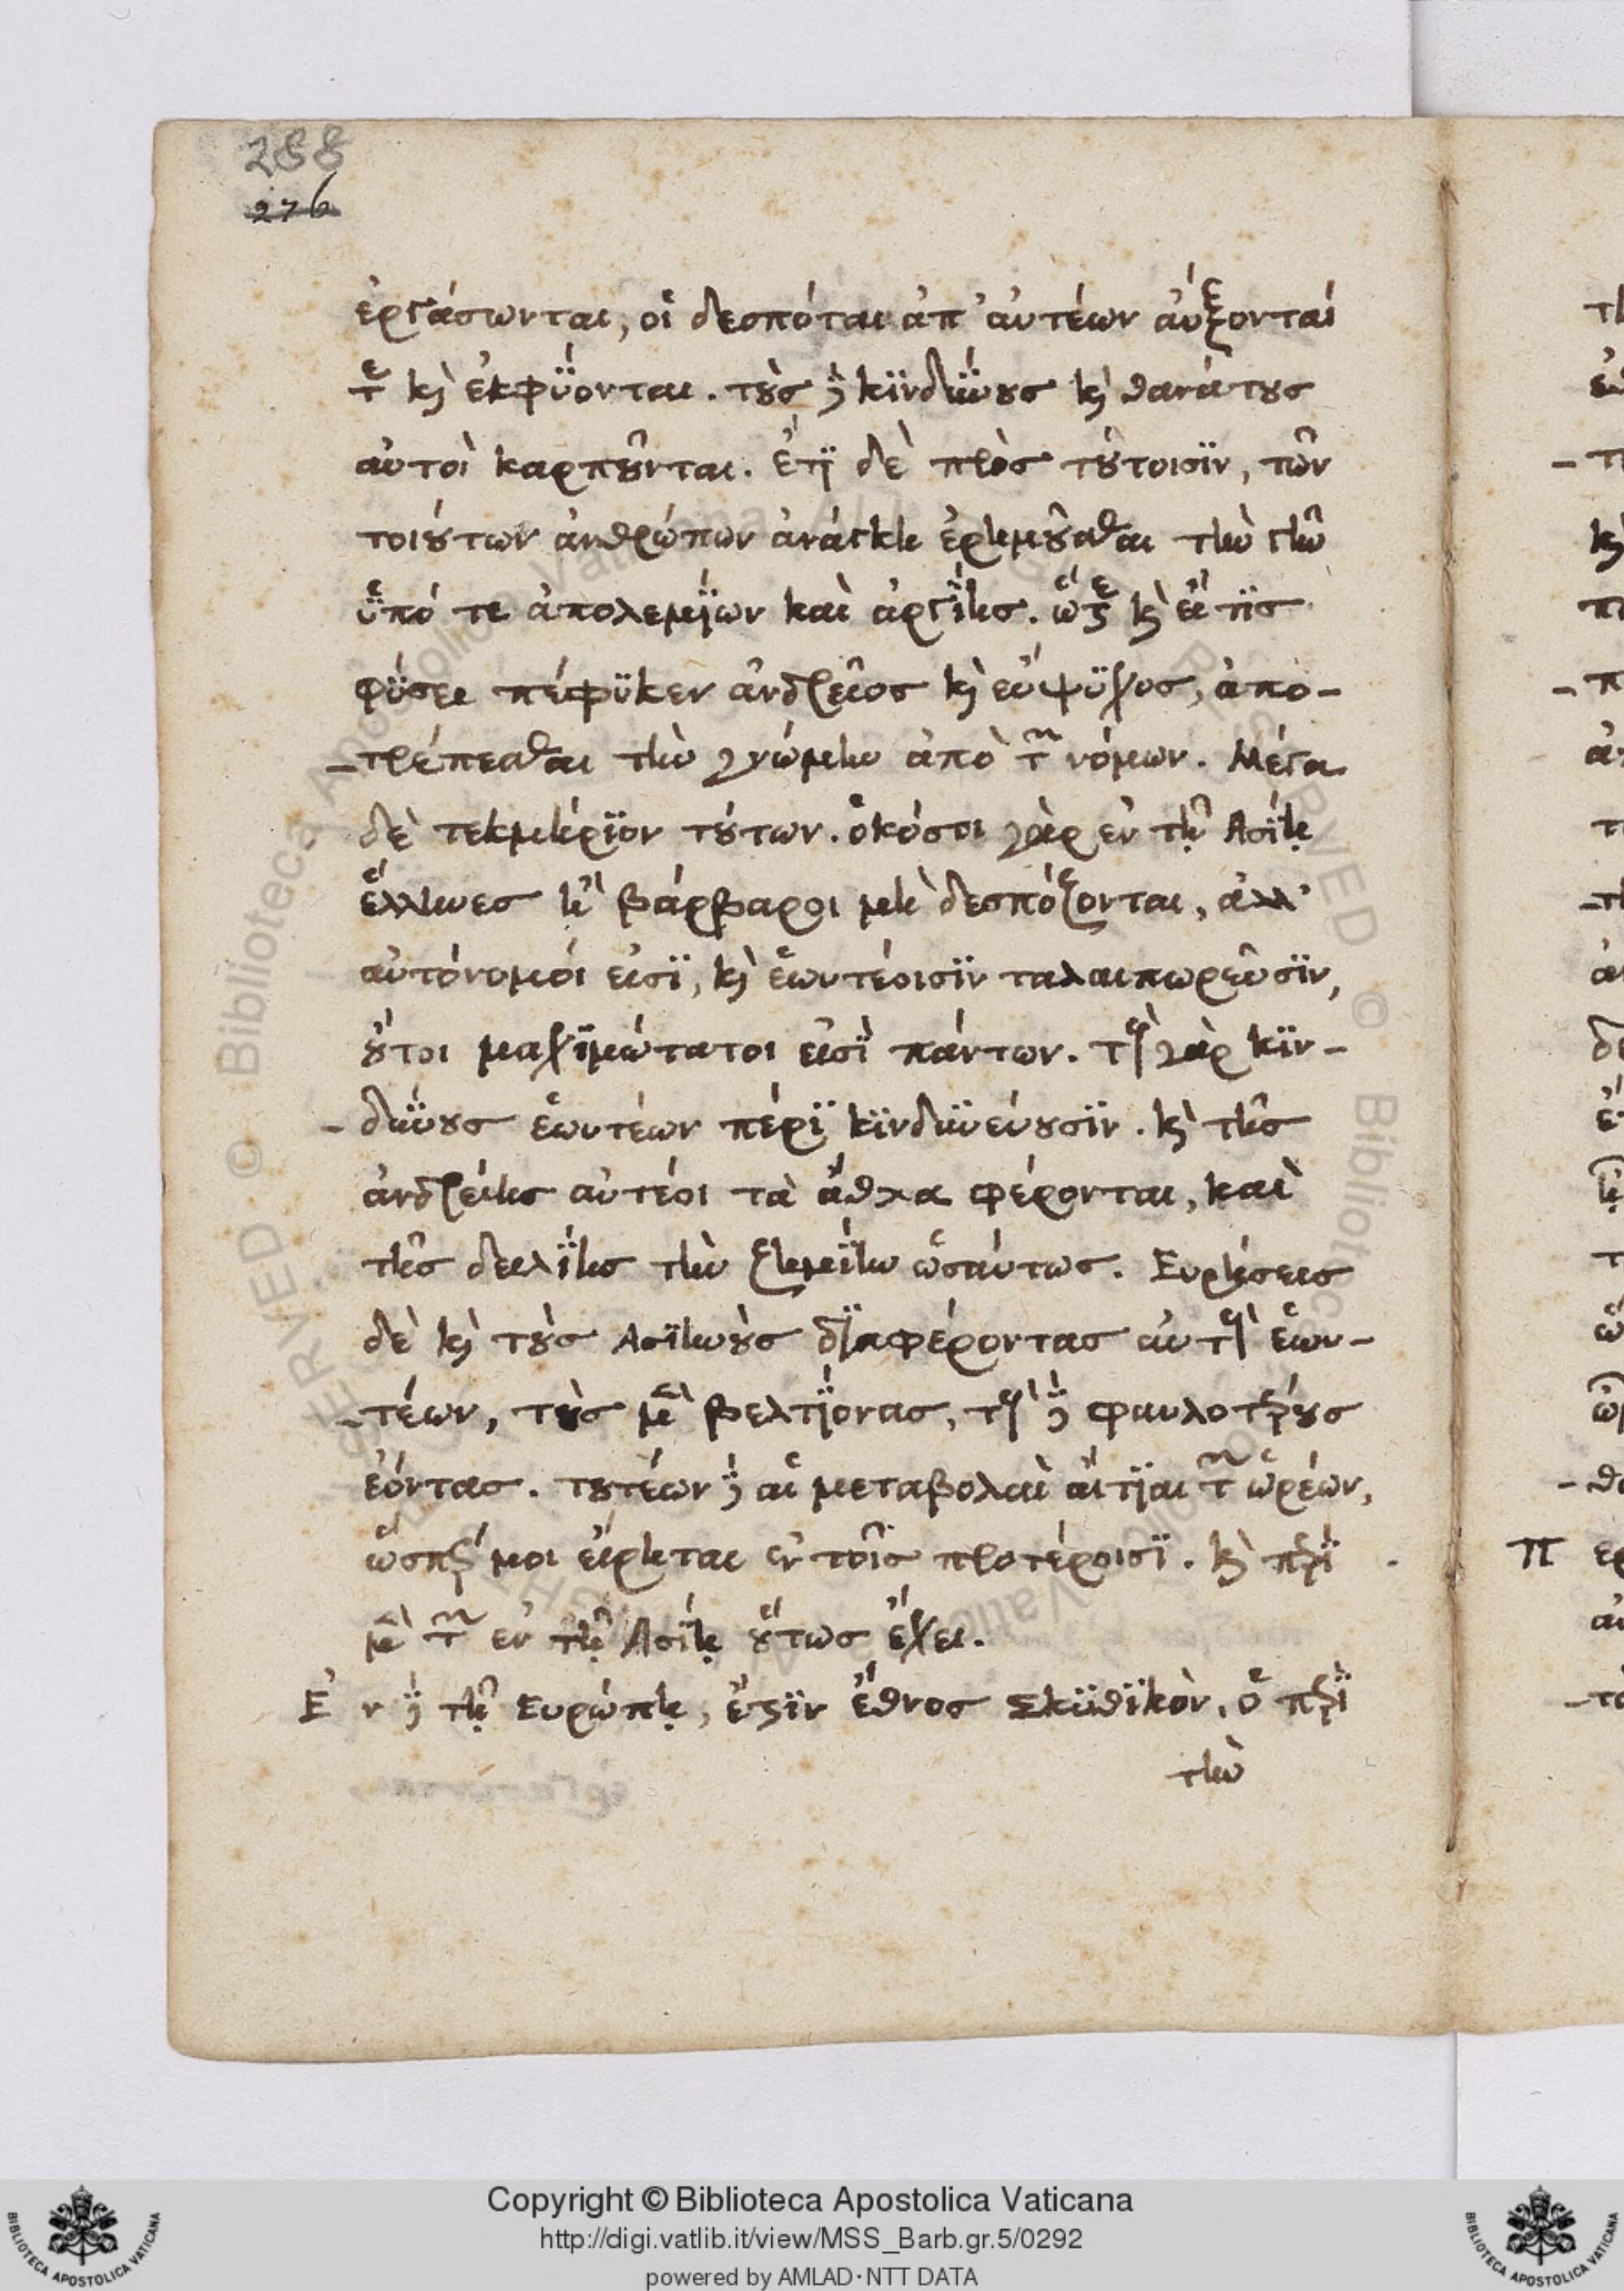 288
276
ἐργάσωνται, οἱ δεσπόται ἀπ' αὐτέων αὔξονταί
τε κὶ ἐκφύονται. τοὺς δὲ κϊνδύνους κὶ θανάτους
αὐτοὶ καρποῦνται. ἔτϊ δὲ πρὸς τούτοισϊν, τῶν
τοιούτων ἀνθρώπων ἀνάγκη ἐρημοῦσθαι τὴν γῆν
ὑπό τε ἀπολεμΐων καὶ ἀργΐης. ὥστε κὶ εἴ τϊς
φύσει πέφϋκεν ἀνδρεῖος κὶ εὔψϋχος, ἀπο-
-τρέπεσθαι τὴν γνώμην ἀπὸ τῶν νόμων. Μέγα
δὲ τεκμήρϊον τούτων. ὁκόσοι γὰρ ἐν τῇ Ασΐῃ
ἕλληνες ἢ βάρβαροι μὴ δεσπόζονται, ἀλλ'
αὐτόνομοί εἰσϊ, κὶ ἑωυτέοισϊν ταλαιπωρεῦσϊν,
οὗτοι μαχϊμώτατοι εἰσῒ πάντων. τοὺς γὰρ κϊν-
-δύνους ἑωυτέων πέρϊ κϊνδϋνεύουσϊν. κὶ τῆς
ἀνδρείης αὐτέοι τὰ ἄθλα φέρονται, καὶ
τῆς δειλΐης τὴν ζημΐην ὡσαύτως. Ευρήσεις
δὲ κὶ τοὺς Ασϊηνοὺς δϊαφέροντας αὐτοὺς ἑωυ-
-τέων, τοὺς μὲν βελτΐονας, τοὺς δὲ φαυλοτέρους
ἐόντας. τουτέων δὲ αἱ μεταβολαὶ αἴτϊαι τῶν ὡρέων,
ὥσπερ μοι εἴρηται ἐν τοῖς προτέροισϊ. κὶ περῒ
μὲν τῶν ἐν τῇ Ασΐῃ οὕτως ἔχει.
Ἐν δὲ τῇ Ευρώπῃ, ἔστϊν ἔθνος Σκϋθϊκὸν, ὃ περῒ
τὴν
Copyright © Biblioteca Apostolica Vaticana
http://digi.vatlib.it/view/MSS_Barb.gr.5/0292
powered by AMLAD·NTT DATA